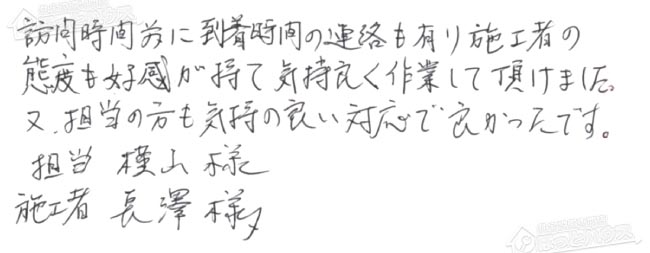 訪問時間前に到着時間の連絡も有り施工者の
態度も好感が持て気持良く作業して頂けました。
又、担当の方も気持の良い対応で良かったです。
担当 横山様
施工者 長澤様